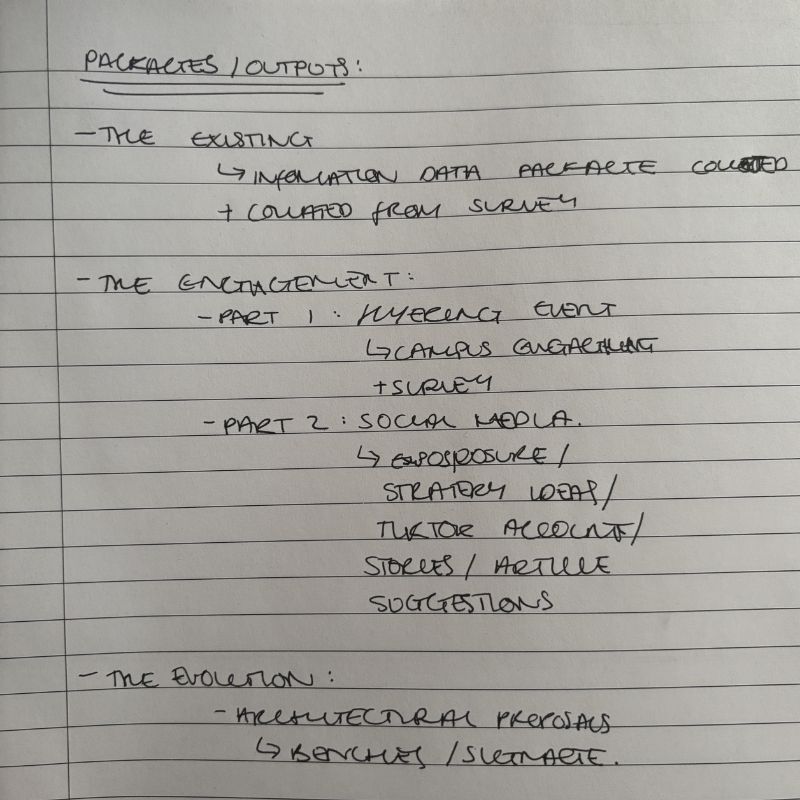 PACKAGES / OUTPUTS:
- THE EXISTING
↳ INFORMATION DATA PACKAGE COLLECTED
+ COLLATED FROM SURVEY
- THE ENGAGEMENT:
- PART 1: EVENT
↳ CAMPUS ENGAGEMENT
+ SURVEY
- PART 2: SOCIAL MEDIA.
↳ EXPOSPOSURE /
STRATERY IDEAS /
TIKTOK ACCOUNT /
STORIES / ARTICLE
SUGGESTIONS
- THE EVOLUTION:
- ARCHITECTURAL PROPOSALS
↳ BENCHES / SIGNAGE.